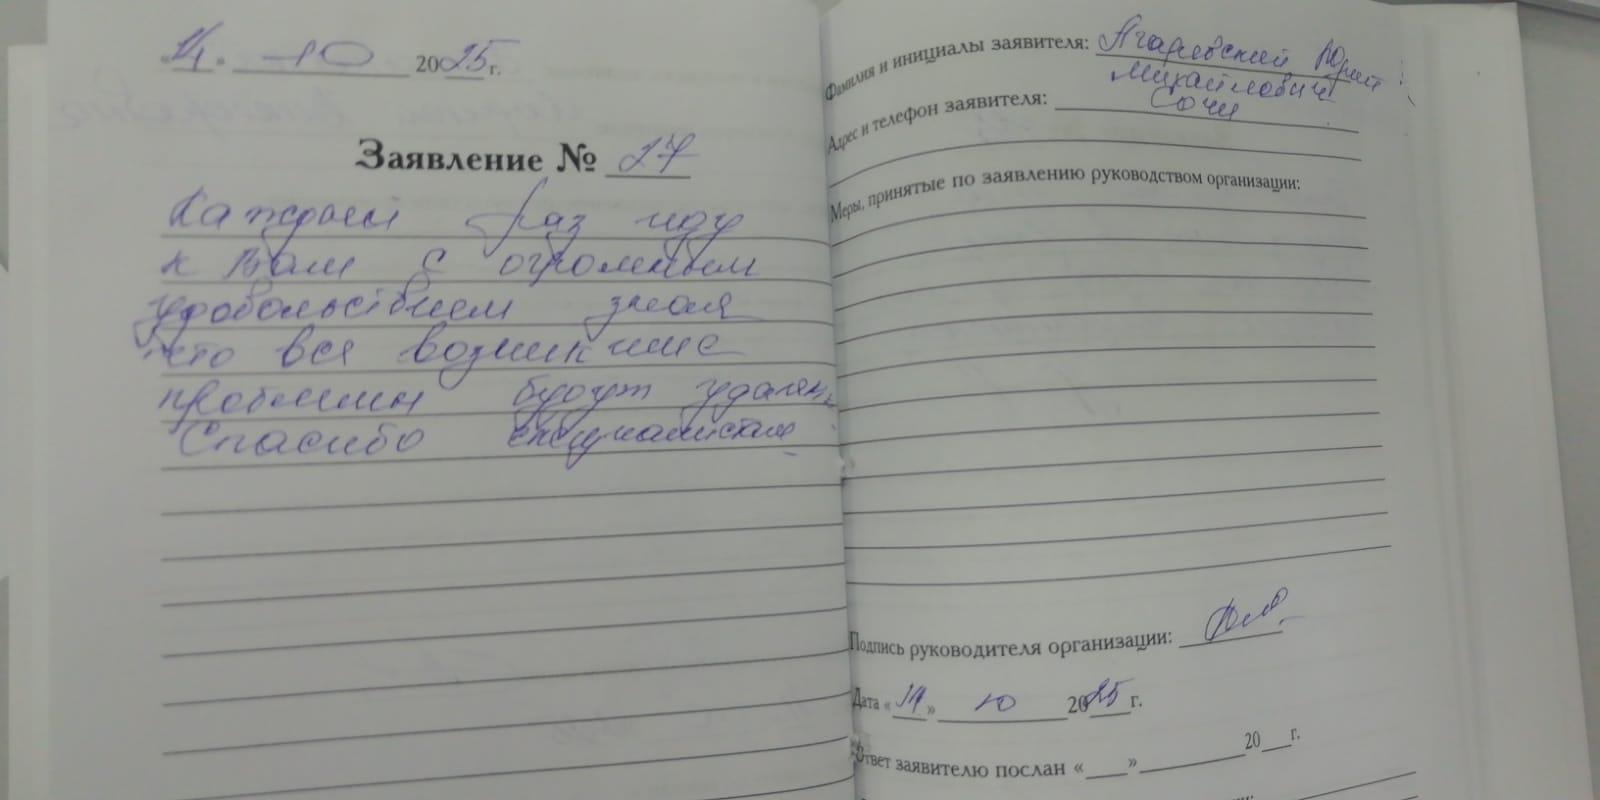 «14» 10 2025г.
Заявление № 27
Каждый раз иду
к Вам с огромным
удовольствием зная
что все возникшие
проблемы будут удалены
Спасибо специалистам
Фамилия и инициалы заявителя: Юрий
Михайлович
Адрес и телефон заявителя: Сочи
Меры, принятые по заявлению руководством организации:
Подпись руководителя организации:
Дата «14» 10 2025 г.
Ответ заявителю послан «___» 20__г.